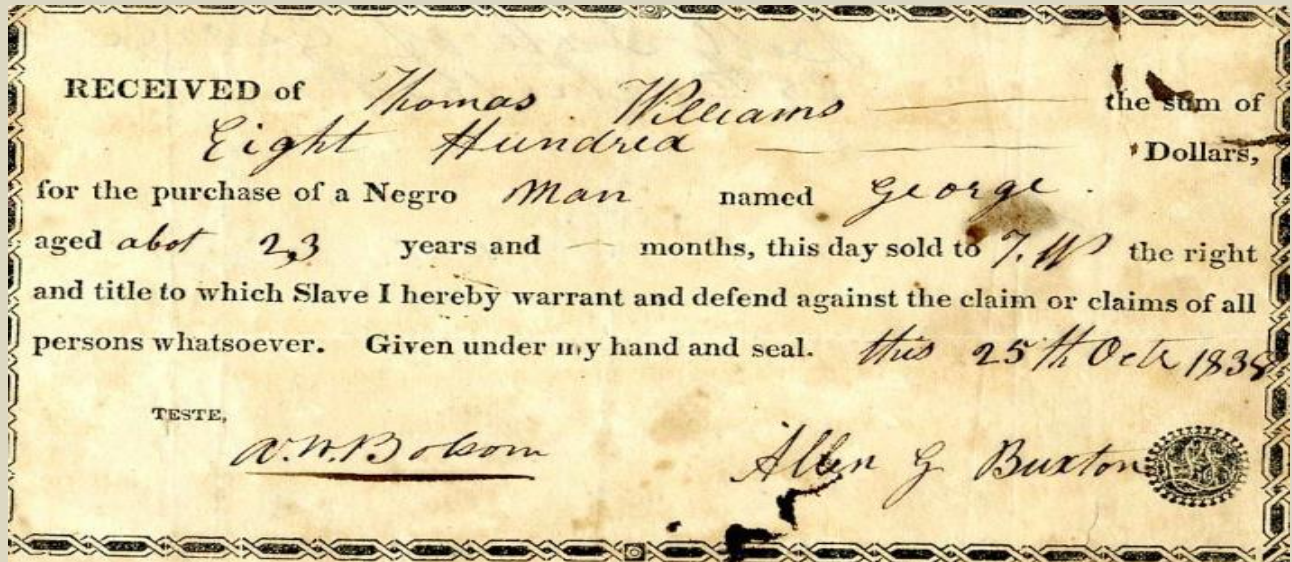 RECEIVED of Thomas Williams the sum of
Eight Hundred Dollars,
for the purchase of a Negro Man named George.
aged abot 23 years and months, this day sold to T.W the right
and title to which Slave I hereby warrant and defend against the claim or claims of all
persons whatsoever. Given under my hand and seal. this 25th Octr 1838
TESTE,
Allen G Buxton